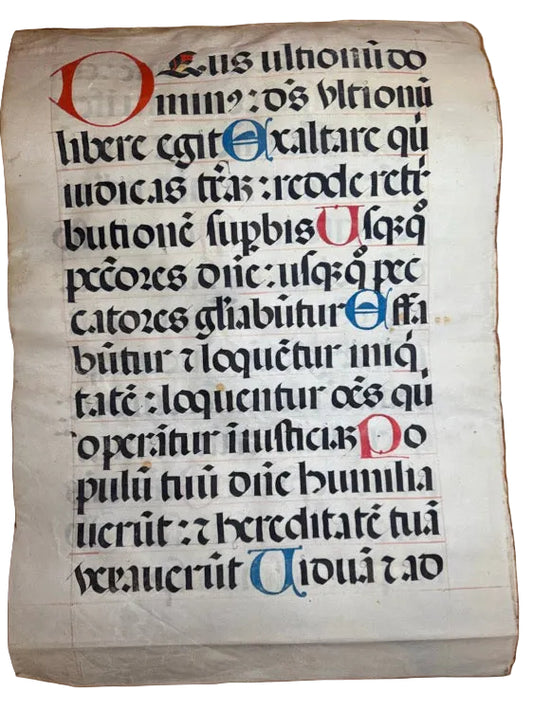 Deus ultionū do
minꝰ: dn̄s vltionū
libere egit Exaltare qū
iudicas tr̄aꝫ: redde retr̄i
butionē supbis Usqꝫ q̄
pec̄cores dn̄e: usqꝫ q̄ pec
catores gl̄iabūtur Effa
būtur ⁊ loquētur iniq̄
tatē: loquentur oēs qū
operātur īiusticiaꝫ Po
pulū tuū dn̄e humilia
uerūt: ⁊ hereditatē tuā
vexauerūt Uiduā ⁊ ad